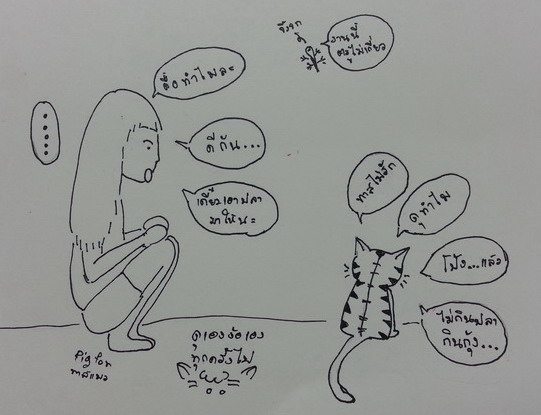 จิ้งจก
งานนี้
ตรูไม่เกี่ยว
ดื้อทำไมล่ะ
.....
ดีกัน...
เดี๋ยวเอาปลา
มาให้นะ
ทาสไม่รัก
ดุทำไม
โป้ง...แล้ว
ไม่กินปลา
กินกุ้ง...
ดุเองง้อเอง
ทุกครั้งไป
ทาสแมว